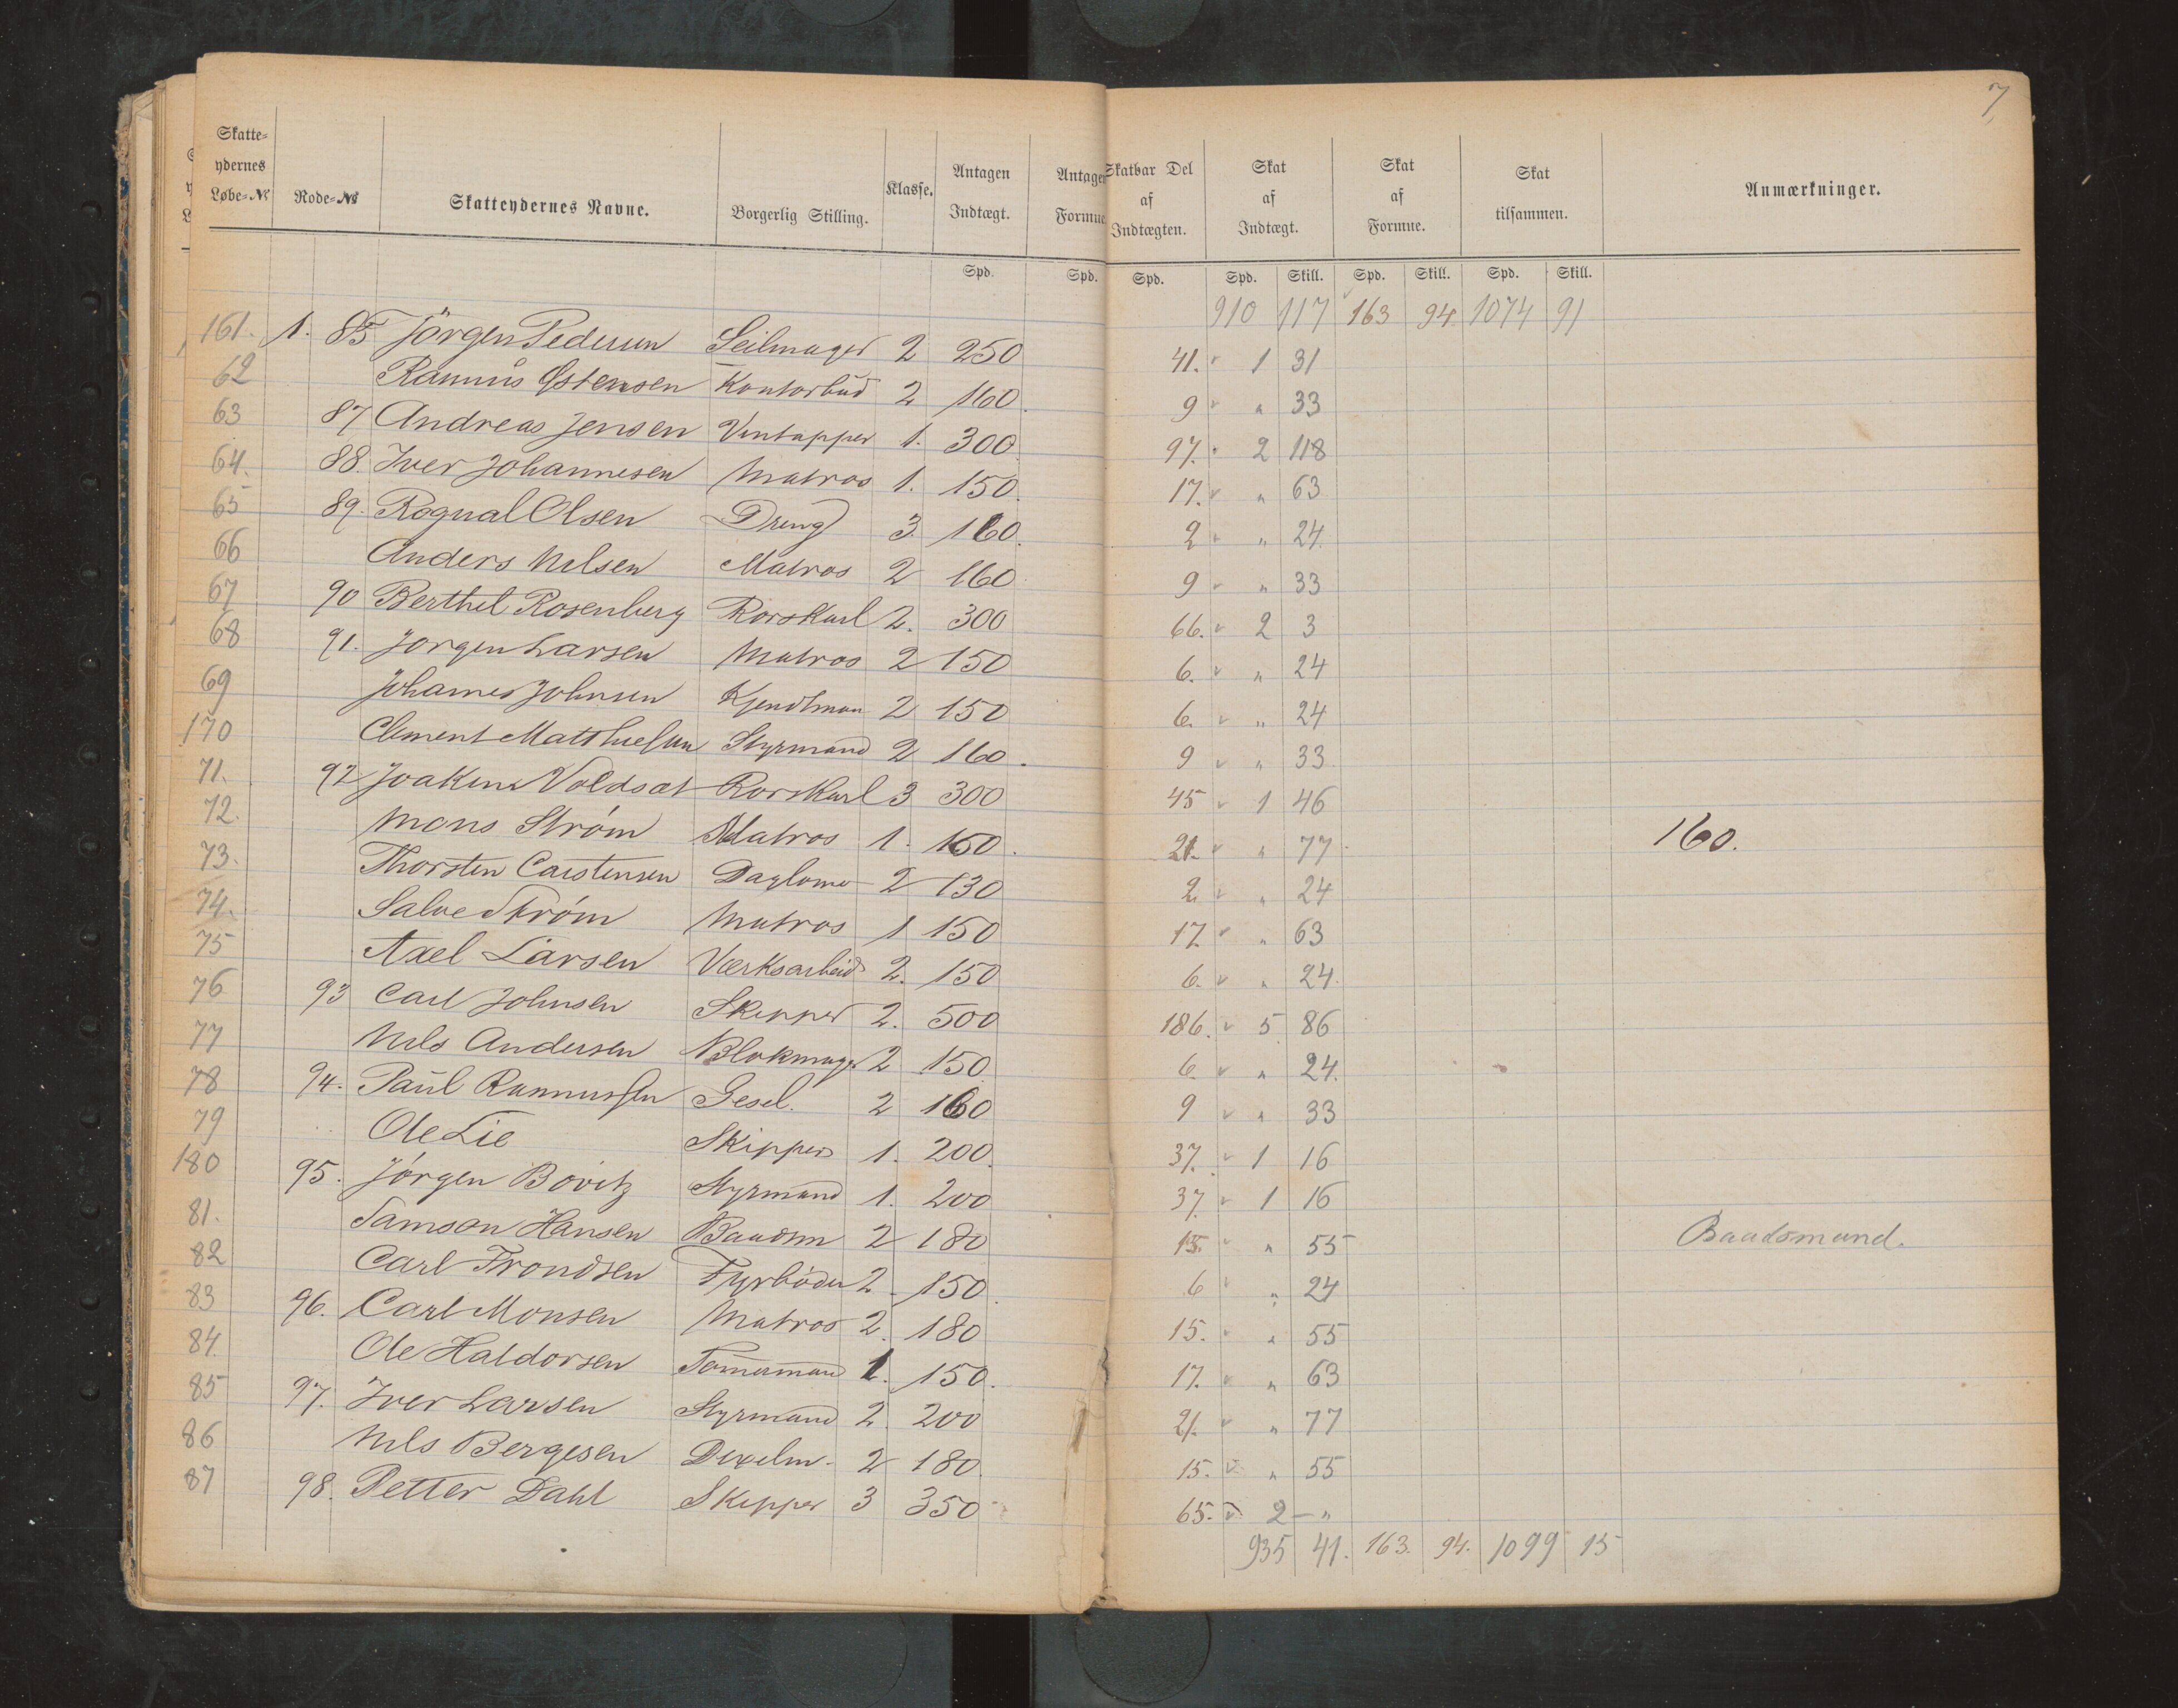 7
Skatte-ydernes Løbe-№ Rode-№ Skatteydernes Navne. Borgerlig Stilling. Klasse. Antagen Indtægt. Antagen Formue Skatbar Del af Indtægten. Skat af Indtægt. Skat af Formue. Skat tilsammen. Anmærkninger.
Spd. Spd. Spd. Spd. Skill. Spd. Skill. Spd. Skill.
910 117 163 94 1074 91
161. 1. 85 Jörgen Pedersen Seilmager 2 250 41. 1 31
62 Rasmus Østensen Kontorbud 2 160. 9 " 33
63 87 Andreas Jensen Vintapper 1. 300 97. 2 118
64. 88. Iver Johannesen Matros 1. 150. 17. " 63
65 89. Rognal Olsen Dreng 3. 160. 2 " 24.
66 Anders Nilsen Matros 2 160 9 " 33
67 90 Berthel Rosenberg Rorskarl 2. 300 66. 2 3
68 91. Jorgen Larsen Matros 2 150 6. " 24
69 Johannes Johnsen Kjendtman 2 150 6. " 24
170 Clement Matthiesen Styrmand 2 160. 9 " 33
71. 92 Joakim Voldsat Rorskarl 3 300 45 1 46
72. Mons Strøm Matros 1. 160. 21. " 77 160.
73. Thorsten Carstensen Daglønn 2 130 2. " 24
74. Salve Strøm Matros 1 150 17 " 63
75 Axel Larsen Værksarbeid 2. 150 6. " 24.
76 93 Carl Johnsen Skipper 2. 500 186. 5 86
77 Nils Andersen Blokmag. 2 150 6. " 24.
78 94. Paul Rasmussen Gesel. 2 160 9 " 33
79 Ole Lie Skipper 1. 200. 37. 1 16
180 95. Jörgen Bovitz Styrmand 1. 200 37. 1 16
81. Samson Hansen Baadsm 2 180 15. " 55 Baadsmand.
82 Carl Trondsen Fyrbøder 2 150. 6 " 24
83 96. Carl Monsen Matros 2. 180 15. " 55
84. Ole Haldorsen Tømmermand 1. 150. 17. " 63
85 97. Iver Larsen Styrmand 2. 200 21. " 77
86 Nils Bergesen Dixelm. 2 180. 15. " 55
87 98. Petter Dahl Skipper 3 350 65. 2 - "
935 41. 163. 94. 1099 15